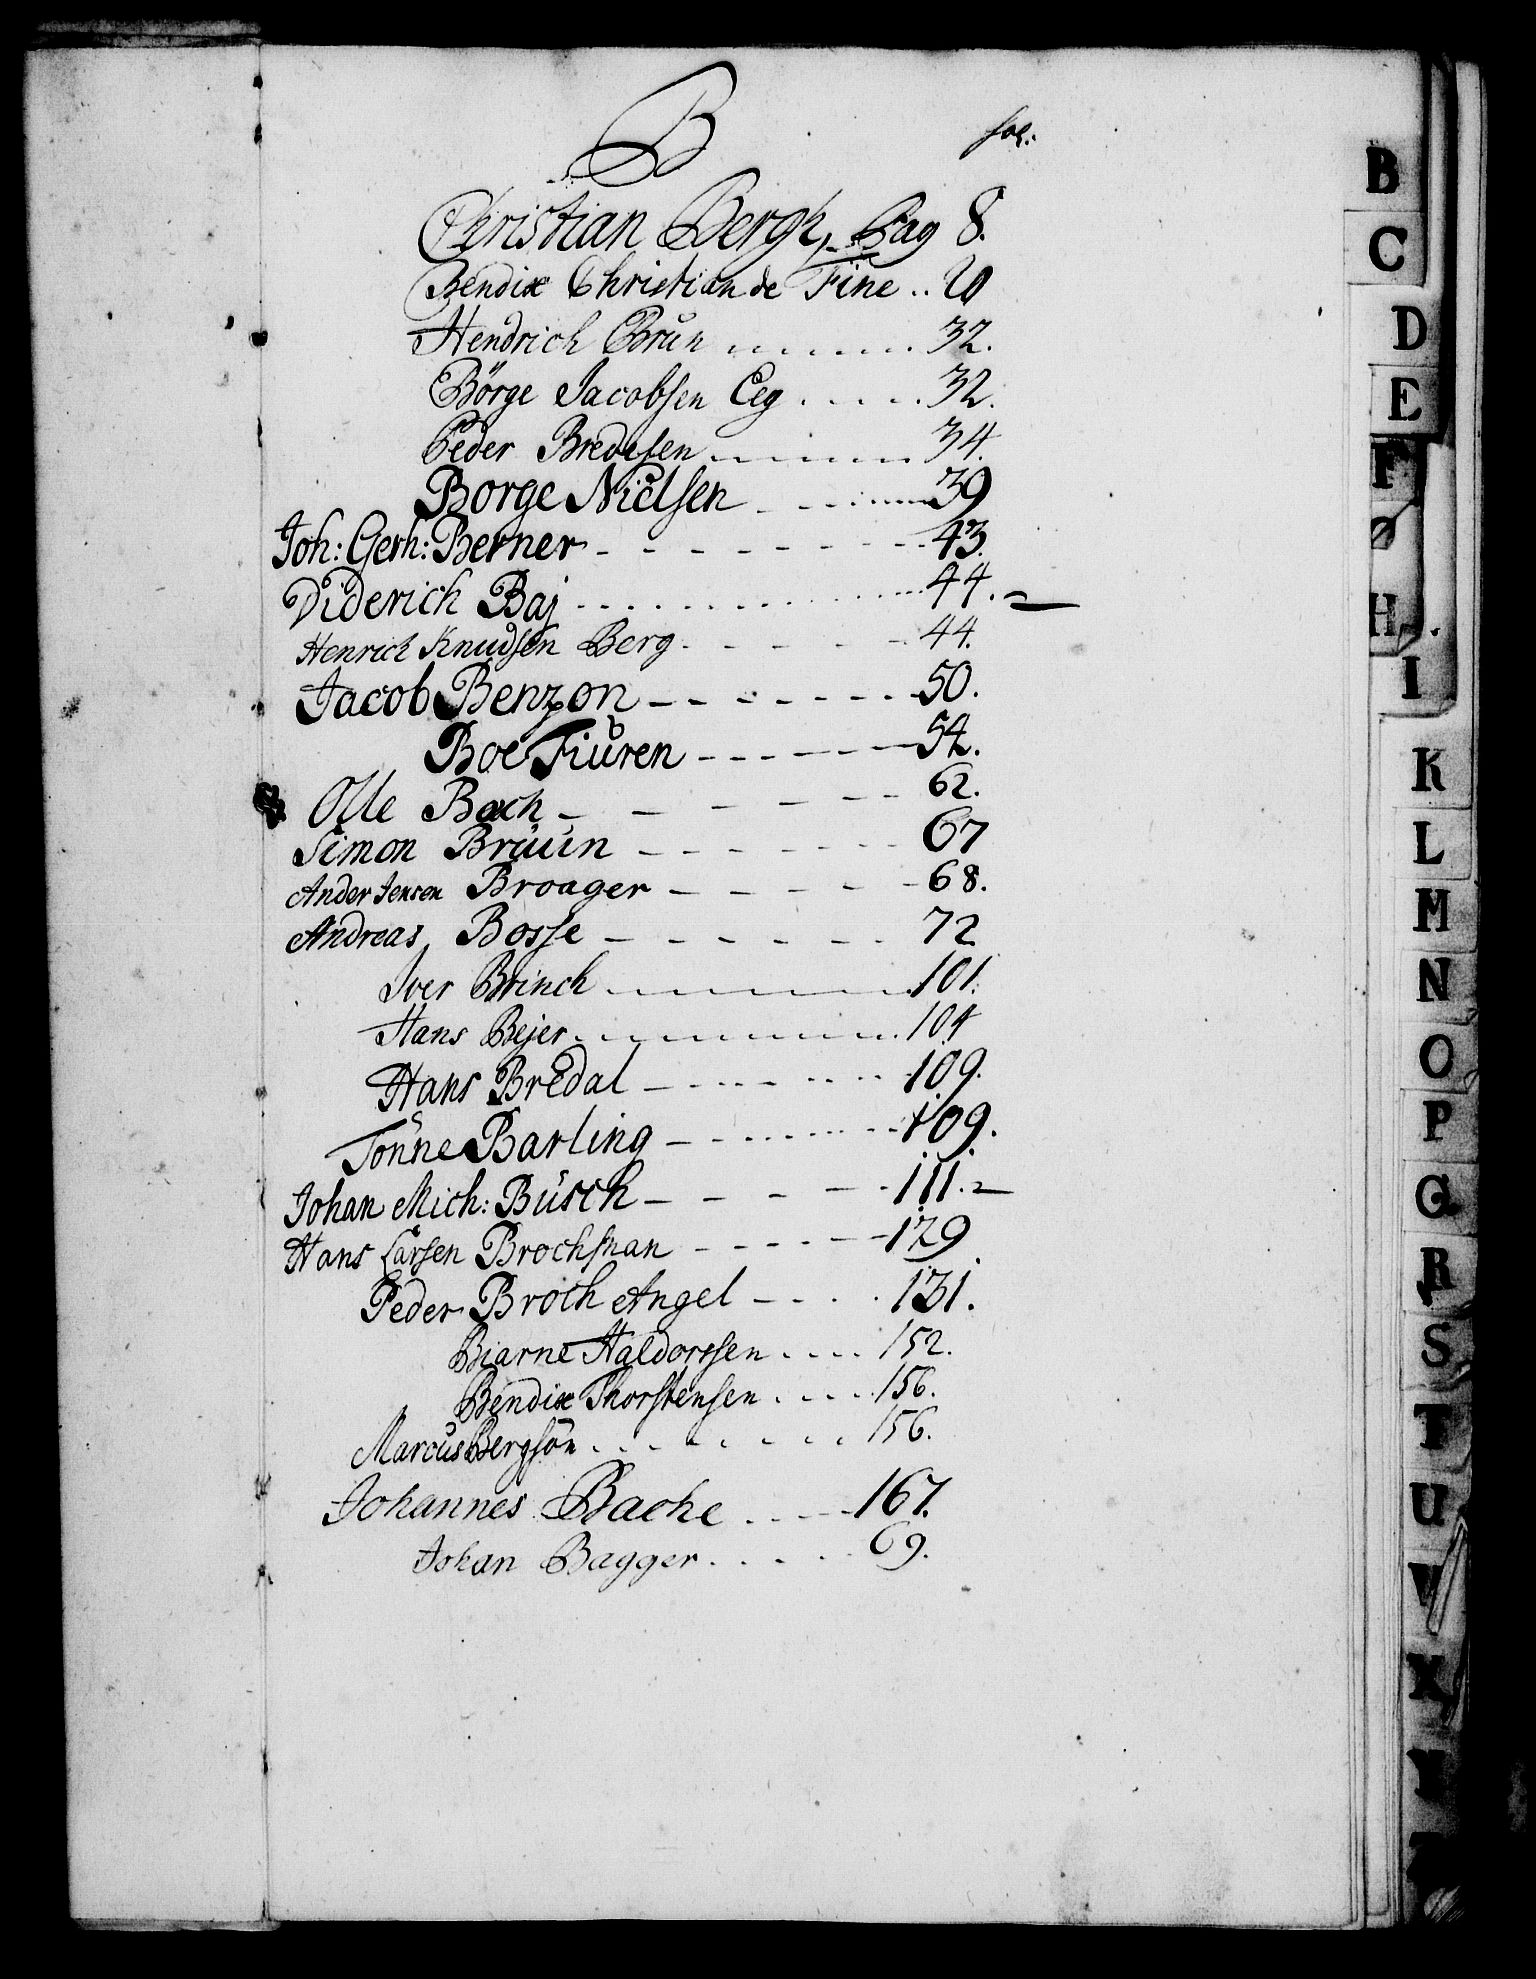 B
fol:
Christian Bergh, Pag 8.
Bendix Christian de Fine .. 20
Hendrich Brun ........ 32.
Börge Jacobsen Eeg ..... 32.
Peder Bredesen ........ 34.
Borge Nielsen ........ 39
Joh: Gerh: Berner - - - - - - - 43.
Diderich Baj ............ 44.
Henrich Knudsen Berg. - - - - 44.
Jacob Benzon - - - - - - - 50.
Boe Fiuren - - - - - 54.
Olle Bach - - - - - 62.
Simon Bruun - - - - - - 67
Ander Jensen Broager - - - - - 68.
Andreas Bosse - - - - - - 72
Iver Brinch ........ 101.
Hans Bejer ........ 104
Hans Bredal - ........ 109.
Tönne Barling - ........ 109.
Johan Mich: Busch - - - - - 111.
Hans Larsen Brochman - - - - - 129
Peder Broch Angel - - . . 131.
Biarne Haldorssen .... 152.
Bendix Thorstensen .... 156.
Marcus Bergsön ........ 156.
Johannes Bache .... 167.
Johan Bagger ..... 69.
B
C
D
E
F
H
I
K
L
M
N
O
P
Q
R
S
T
U
V
X
Y